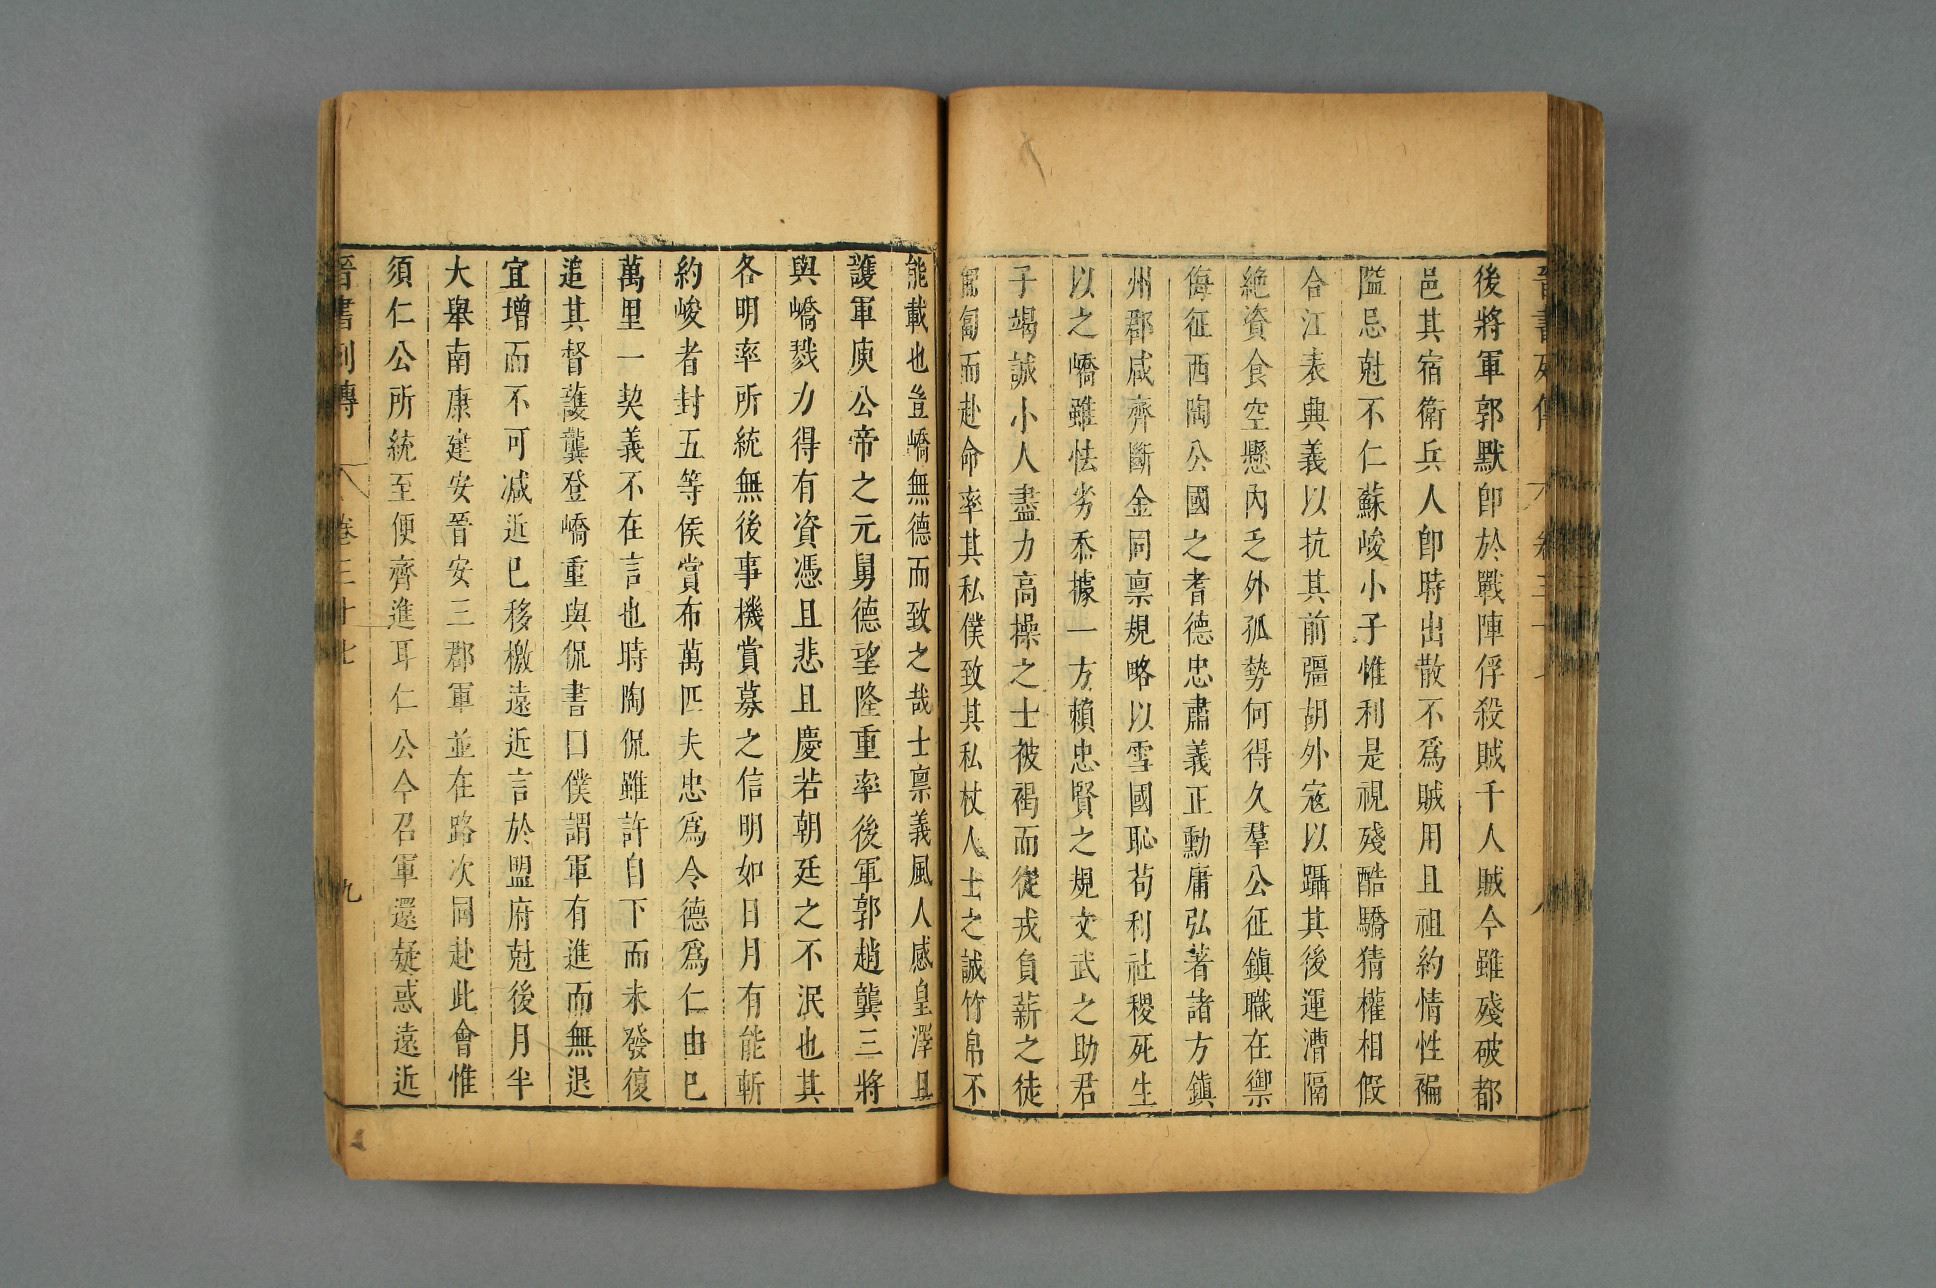 晉書列傳 卷三十七 八
後將軍郭默卽於戰陣俘殺賊千人賊今雖殘破都
邑其宿衛兵人卽時出散不爲賊用且祖約情性褊
隘忌尅不仁蘇峻小子惟利是視殘酷驕猜權相假
合江表興義以抗其前彊胡外寇以躡其後運漕隔
絶資食空懸內乏外孤勢何得久羣公征鎮職在禦
侮征西陶公國之耆德忠肅義正勳庸弘著諸方鎮
州郡咸齊斷金同禀規略以雪國恥苟利社稷死生
以之嶠雖怯劣忝據一方賴忠賢之規文武之助君
子竭誠小人盡力高操之士被褐而從戎負薪之徒
匍匐而赴命率其私僕致其私杖人士之誠竹帛不
能載也豈嶠無德而致之哉士禀義風人感皇澤且
護軍庾公帝之元舅德望隆重率後軍郭趙龔三將
與嶠戮力得有資憑且悲且慶若朝廷之不泯也其
各明率所統無後事機賞募之信明如日月有能斬
約峻者封五等侯賞布萬匹夫忠爲令德爲仁由已
萬里一契義不在言也時陶侃雖許自下而未發復
追其督護龔登嶠重與侃書曰僕謂軍有進而無退
宜增而不可减近已移檄遠近言於盟府尅後月半
大舉南康建安晉安三郡軍並在路次同赴此會惟
須仁公所統至便齊進耳仁公今召軍還疑惑遠近
晉書列傳 卷三十七 九